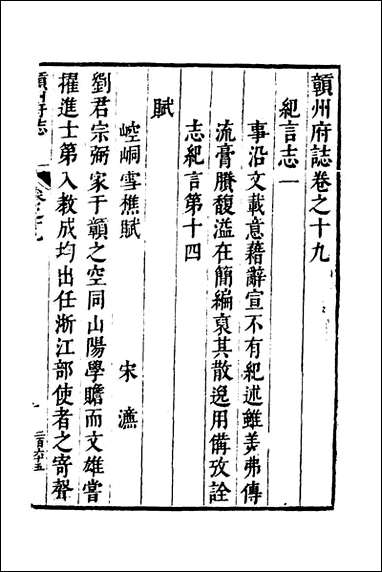 贛州府誌卷之十九
紀言志一
事沿文載意藉辭宣不有紀述雖美弗傳
流膏賸馥溢在簡編裒其散逸用備攷詮
志紀言第十四
賦
崆峒雪樵賦 宋濂
劉君宗弼家于贛之空同山陽學贍而文雄嘗
擢進士第入教成均出任浙江部使者之寄聲
贛州府志